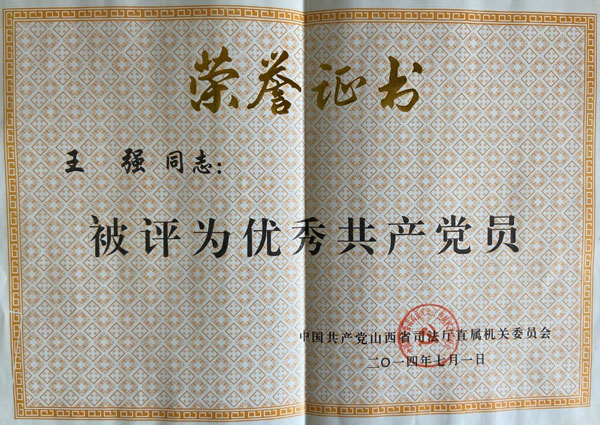 荣誉证书
王 强 同志：
被评为优秀共产党员
中国共产党山西省司法厅直属机关委员会
二〇一四年七月一日